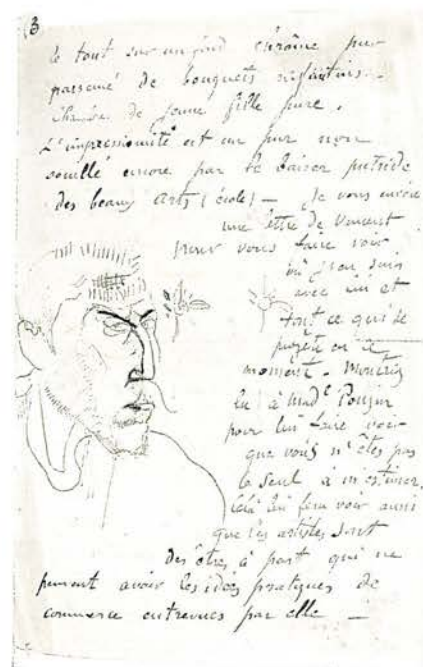 (3
le tout sur un fond chrôme pur
parsemé de bouquets enfantins.
Chambre de jeune fille pure.
L'impressioniste est un pur non
souillé encore par le baiser putride
des beaux arts (école) — Je vous envoie
une lettre de Vincent
pour vous faire voir
où j'en suis
avec lui et
tout ce qui se
projette en ce
moment. Montrez
la à Mad^e
pour lui faire voir
que vous n'êtes pas
le seul à m'estimer.
Celà lui fera voir aussi
que les artistes sont
des êtres à part qui ne
peuvent avoir les idées pratiques de
commerce entrevues par elle —